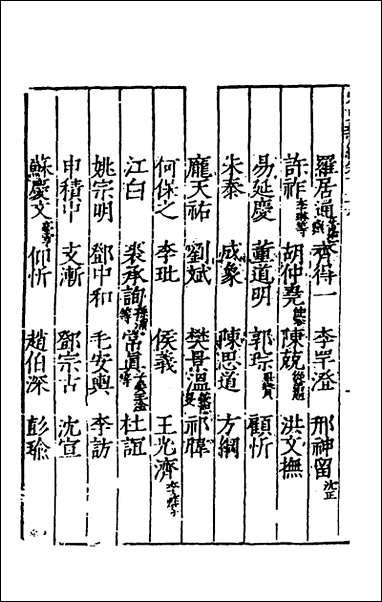 羅居通 齊得一 李罕澄 邢神留 沈正
許祚 李琳等 胡仲堯 陳兢 洪文撫
易延慶 董道明 郭琮 顧忻
朱泰 成象 陳思道 方綱
龐天祐 劉斌 樊景溫 祁暐
何保之 李玭 侯義 王光濟 李祚等
江白 裘承詢 孫浦等 常眞 杜誼
姚宗明 鄧中和 毛安輿 李訪
申積中 支漸 鄧宗古 沈宣
蘇慶文 臺亨 仰忻 趙伯深 彭瑜